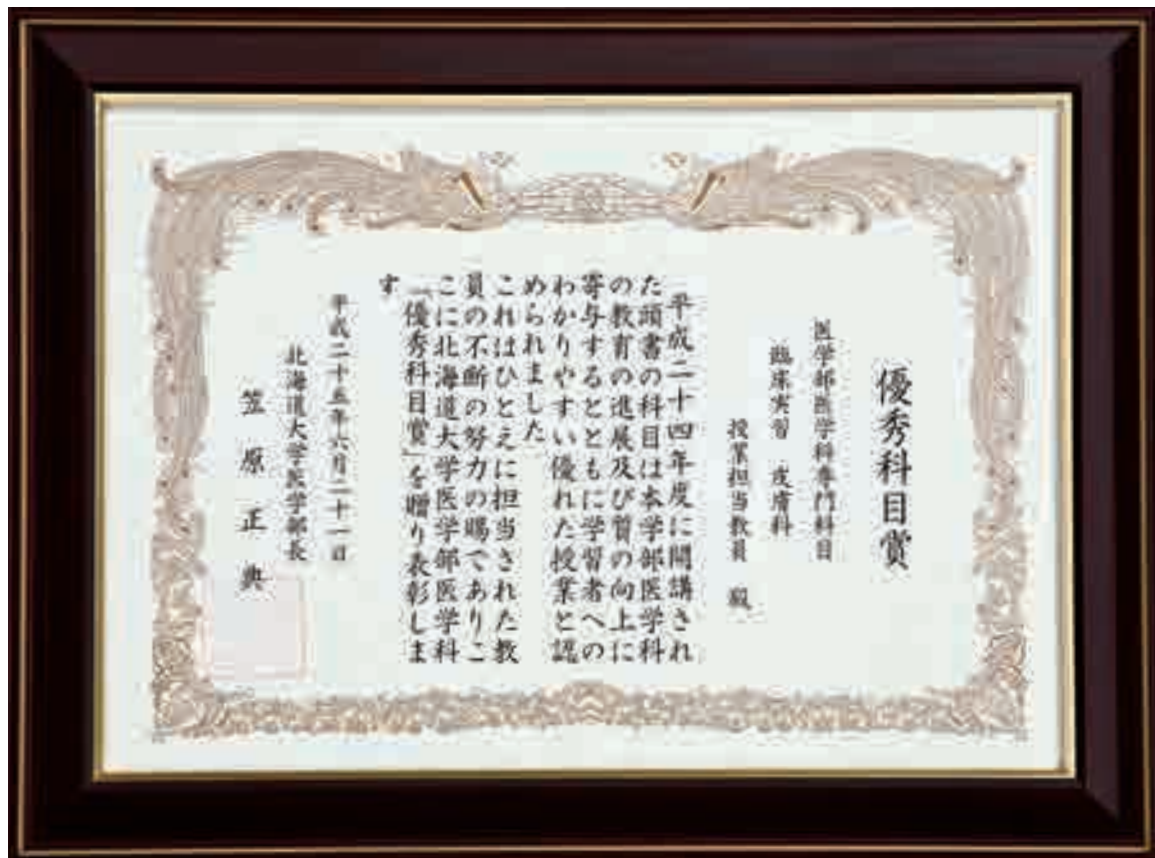 優秀科目賞
医学部医学科専門科目
臨床実習 皮膚科
授業担当教員 殿
平成二十四年度に開講され
た頭書の科目は本学部医学科
の教育の進展及び質の向上に
寄与するとともに学習者への
わかりやすい優れた授業と認
められました
これはひとえに担当された教
員の不断の努力の賜でありこ
こに北海道大学医学部医学科
「優秀科目賞」を贈り表彰しま
す
平成二十五年六月二十一日
北海道大学医学部長
笠原正典